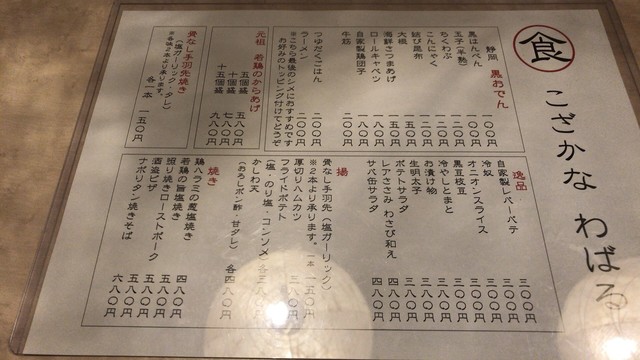 食
こざかな わばる
静岡 黒おでん
黒はんぺん 一〇〇円
玉子(半熟) 一〇〇円
ちくわぶ 一〇〇円
こんにゃく 一〇〇円
結び昆布 一〇〇円
大根 一五〇円
海鮮さつまあげ
ロールキャベツ
自家製鶏団子
牛筋 二〇〇円
つゆだくごはん 二〇〇円
ラーメン 二〇〇円
※こちら最後の〆におすすめです
お好みのトッピング付けてどうぞ
元祖 若鶏のからあげ
五個盛 五八〇円
十個盛 七八〇円
十五個盛 九八〇円
骨なし手羽先焼き
(塩ガーリック・タレ)
※各味2本より承ります。
各一本 一五〇円
逸品
自家製レバーパテ 三〇〇円
オニオンスライス 三〇〇円
冷奴 三〇〇円
黒豆枝豆 三〇〇円
冷やしとまと 三〇〇円
お漬け物 三八〇円
生明太子 三八〇円
ポテトサラダ 三八〇円
レアささみ わさび和え 四八〇円
サバ缶サラダ 四八〇円
揚
骨なし手羽先(塩ガーリック)
※2本より承ります。 一本 一五〇円
厚切りハムカツ 三八〇円
フライドポテト
(塩・のり塩・コンソメ)
かしわ天
(おろしポン酢・甘ダレ) 各四八〇円
焼き
鶏ハラミの葱塩焼き 四八〇円
若鶏の旨塩焼き 五八〇円
照り焼きローストポーク 五八〇円
酒盗ピザ 五八〇円
ナポリタン焼きそば 六八〇円